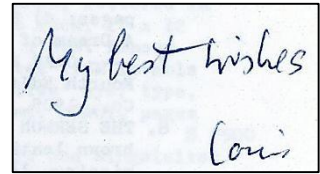 My best wishes
Louis